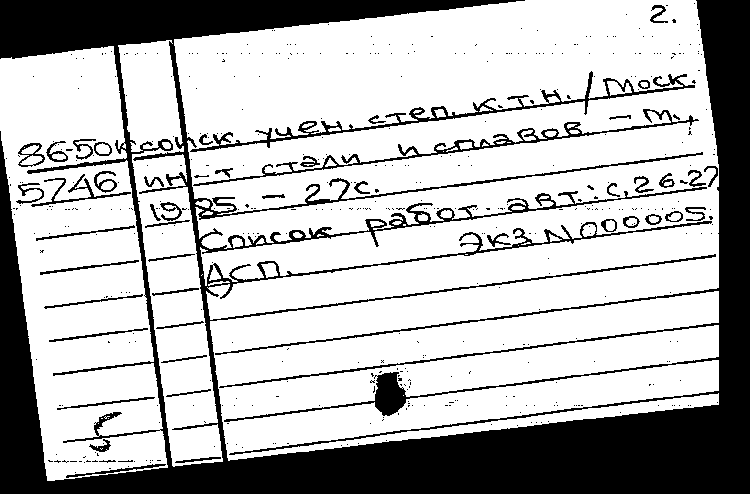 2.
86-50к соиск. учен. степ. к.т.н. / Моск.
5746 ин-т стали и сплавов. - М.,
1985. - 27с.
Список работ авт.: с. 26-27
ДСП. Экз N000005.
5